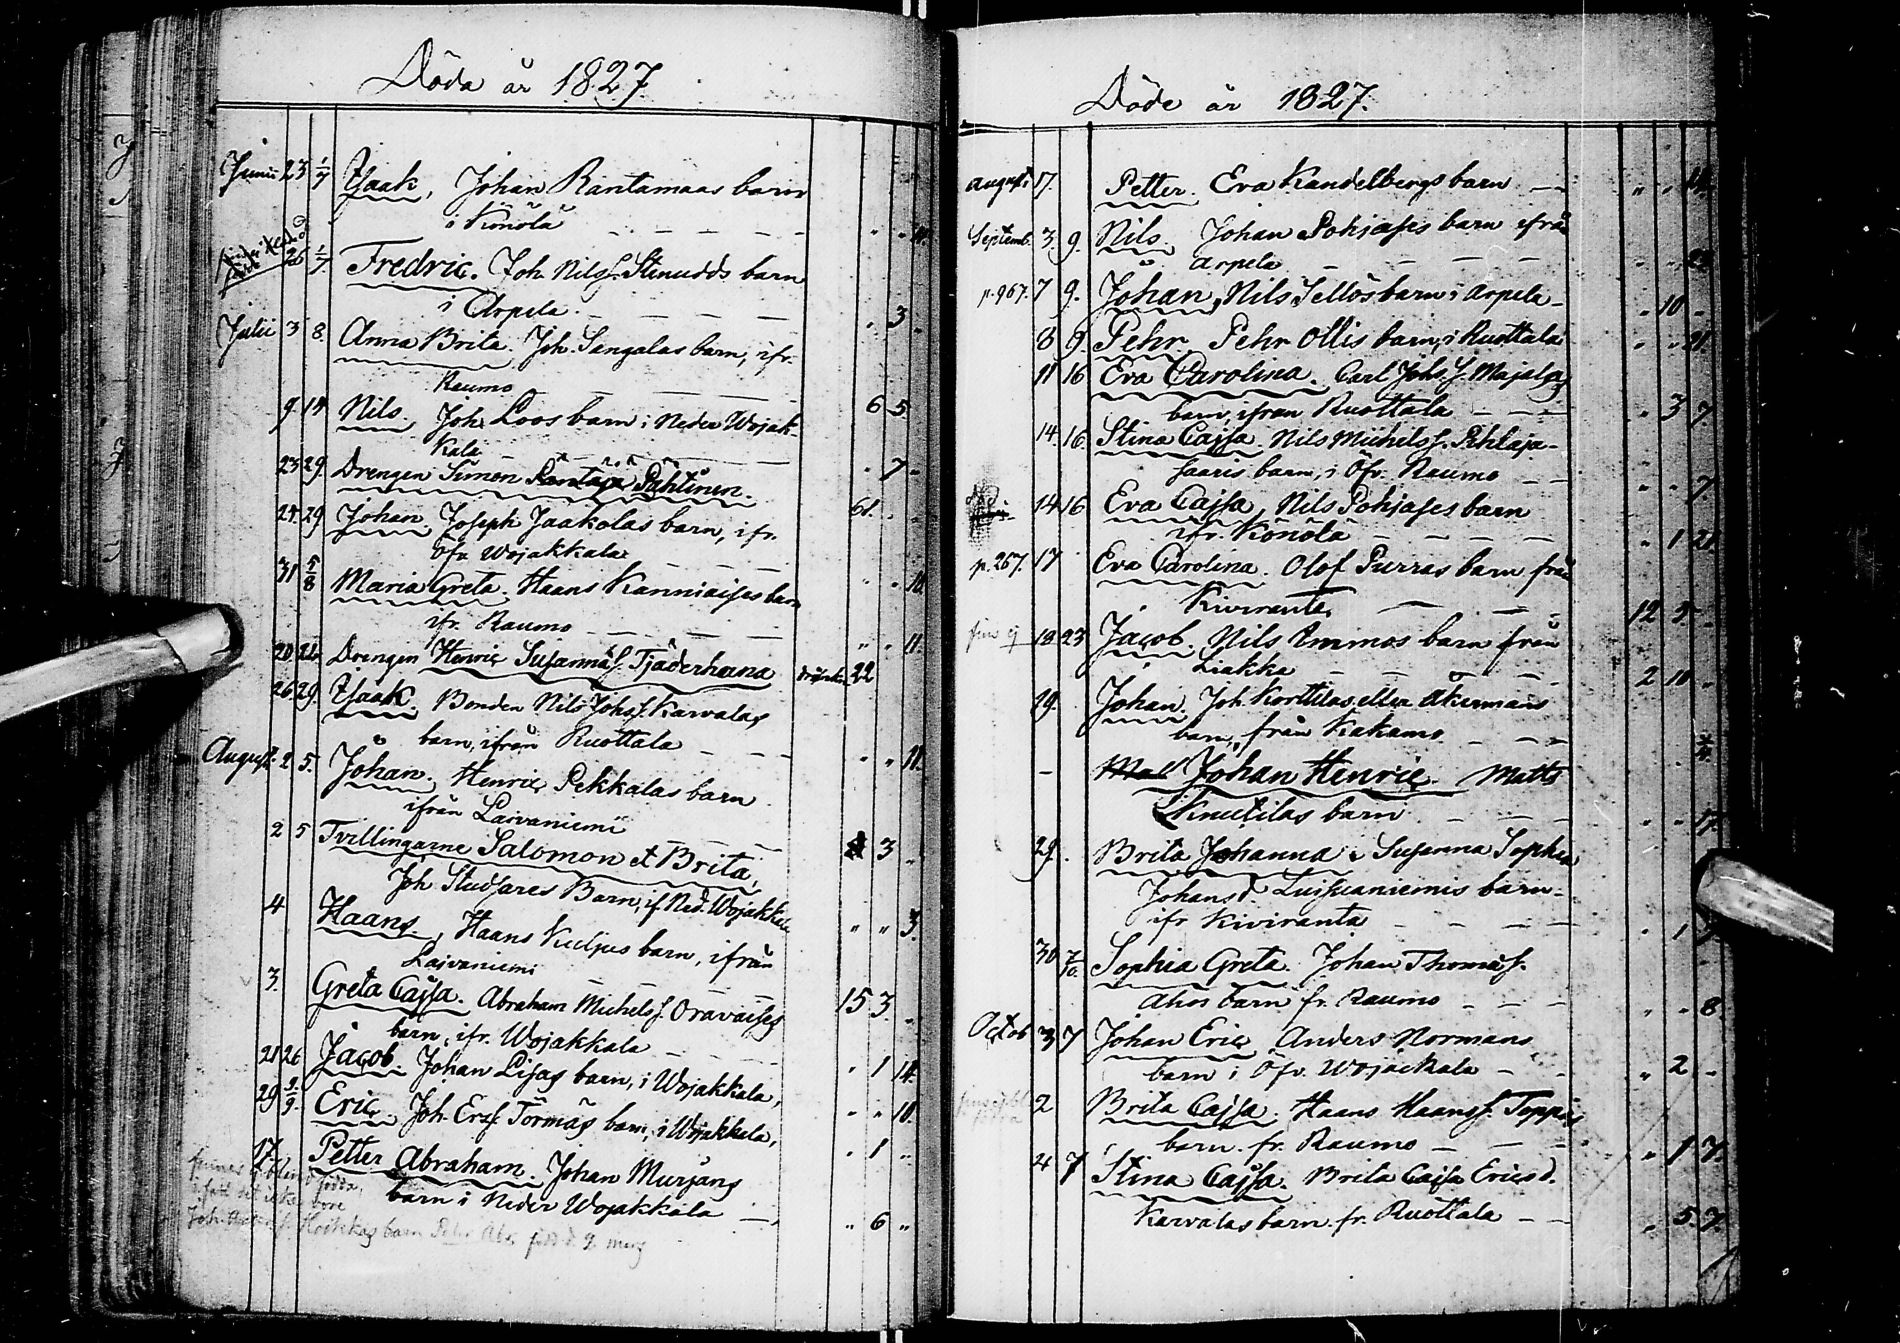 Döda år 1827.
Junii 23 1/7 Isaak, Johan Rantamaas barn
i Könölä — — — " " 
26 1/7 Fredric. Joh. Nilss. Stenudds barn
i Arpela. — — — " 3 "
Julii 3 8. Anna Brita. Joh. Sangalas barn, ifr.
Raumo — — — 6 5
9 14 Nils. Joh. Loos barn i Neder Wojak-
kala — — — " 7 "
23 29 Drengen Simon Pähtinen. 61. " "
24 29 Johan. Joseph Jaakolas barn, ifr.
Öfr. Wojakkala — — " " 10.
31 5/8 Maria Greta. Haans Kanniaises barn
ifr. Raumo — — — " " 11
20 22 Drengen Henric Susannäs. Tjäderhana 22
26 29. Isaak. Bonden Nils Johss. Karvalas
barn, ifrån Ruottala — — " " 11.
August. 2 5. Johan. Henric Pekkalas barn
ifrån Laivaniemi — — 3 "
2 5 Tvillingarne Salomon et Brita,
Joh. Studsares Barn, if. Ned. Wojakkala " " 3.
4 Haans, Haans Kuljus barn, ifrån
Laivaniemi — — — 15 3 "
3. Greta Cajsa. Abraham Michelss. Oravaises
barn, ifr. Wojakkala — — " 1 14.
21 26 Jacob. Johan Lisas barn, i Wojakkala, " " 10.
29 2/9. Eric. Joh. Ersss. Törmäs barn, i Wojakkala, " 1 "
17. Petter Abraham. Johan Murjans
barn i Neder Wojakkala — " 6 "
Joh. Hoikkas barn Peter Abr. född d. 9 mars
Döde år 1827.
Augusti 17. Petter. Eva Kandelbergs barn — — " "
Septemb. 3. 9. Nils. Johan Pohjases barn ifrån
Arpela — — — — " "
p. 967. 7 9. Johan, Nils Sellös barn i Arpela — " 10 "
8 9. Pehr. Pehr Ollis barn, i Ruottala " " 21.
11 16 Eva Carolina. Carl Johss. Majalas
barn, ifrån Ruottala — — — " 3 7.
14. 16. Stina Cajsa. Nils Michelss. Pihlaja-
saaris barn, i Öfr. Raumo — — " " 7
14 16 Eva Cajsa, Nils Pohjases barn
ifr. Könölä — — — — " 1 21
p. 267. 17 Eva Carolina. Olof Purras barn från
Kiviranta — — — 12 5 "
18 23 Jacob. Nils Ummos barn från
Liakka — — — — 2 10 "
19. Johan. Joh. Korttilas eller Åkermans
barn, från Kakamo — — —
— Johan Henric. Matts
Knutilas barn — — — " " 17.
29. Brita Johanna. Susanna Sophia
Johansd. Luissaniemis barn —
ifr Kiviranta — — — — " 1
30 7/10. Sophia Greta. Johan Thomäs.
Ahos barn fr. Raumo — — — " " 8
Octob 3 7 Johan Eric Anders Normans
barn i Öfr. Wojackala — — " 2 "
2 Brita Cajsa. Haans Haanss. Toppis
barn. fr. Raumo — — — " 1 7.
4 7 Stina Cajsa. Brita Cajsa Ericsd.
Karvalas barn fr. Ruottala — — " 5 7.